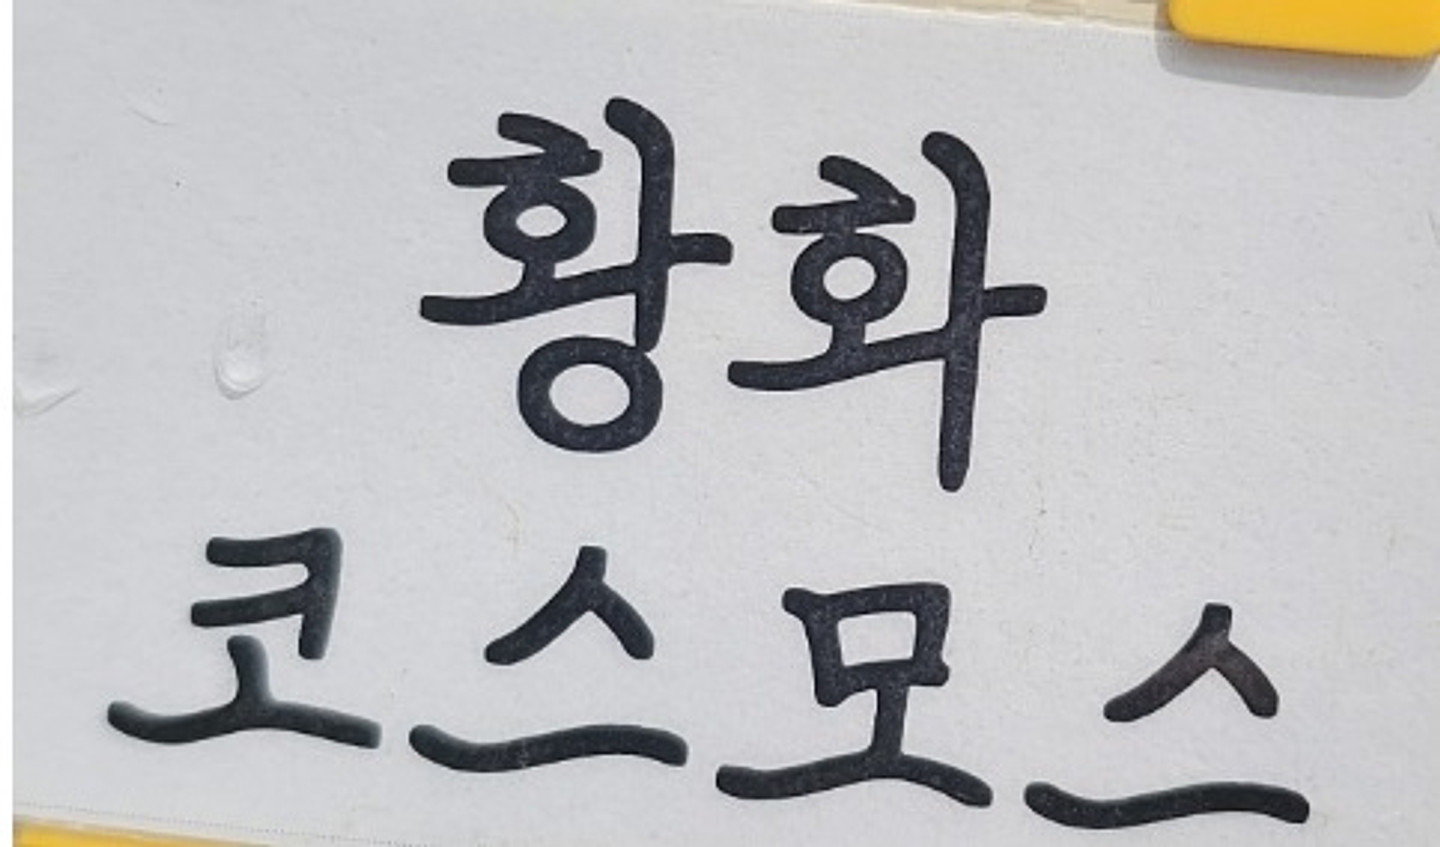 황화
코스모스